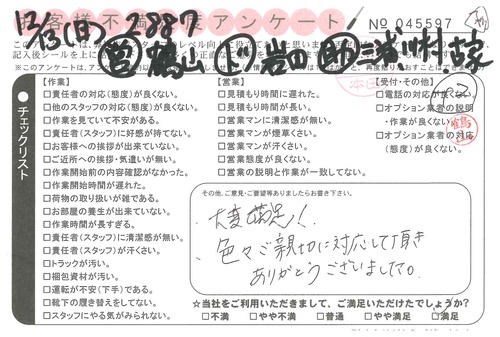 お客様不満足度アンケート
№ 045597
12/3(日) 2887
営 鵜山 下 岩田 師 浅川 村上 荻
チェックリスト
【作業】
□責任者の対応(態度)が良くない。
□他のスタッフの対応(態度)が良くない。
□作業を見ていて不安がある。
□責任者(スタッフ)に好感が持てない。
□お客様への挨拶が出来ていない。
□ご近所への挨拶・気遣いが無い。
□作業開始前の内容確認がなかった。
□作業開始時間が遅れた。
□荷物の取り扱いが雑である。
□お部屋の養生が出来ていない。
□作業時間が長すぎる。
□責任者(スタッフ)に清潔感が無い。
□責任者(スタッフ)が汗くさい。
□トラックが汚い。
□梱包資材が汚い。
□運転が不安(下手)である。
□靴下の履き替えをしてない。
□スタッフにやる気がみられない。
【営業】
□見積もり時間に遅れた。
□見積もり時間が長い。
□営業マンに清潔感が無い。
□営業マンが煙草くさい。
□営業マンが汗くさい。
□営業態度が良くない。
□営業の説明と作業が一致してない。
【受付・その他】
□電話の対応が良くない。
□オプション業者の説明
・作業が良くない。
□オプション業者の対応
(態度)が良くない。
その他、ご意見・ご要望等ありましたらお書き下さい。
大変満足!!
色々ご親切に対応して頂き
ありがとうございました。
☆当社をご利用いただきまして、ご満足いただけたでしょうか?
□不満 □やや不満 □普通 □やや満足 □満足